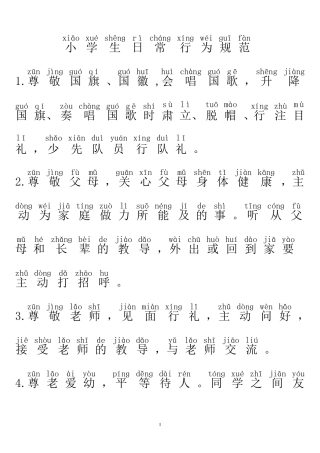 xiǎo xué shēng rì cháng xíng wéi guī fàn
小学生日常行为规范
zūn jìng guó qí guó huī huì chàng guó gē shēng jiàng
1.尊敬国旗、国徽,会唱国歌，升降
guó qí zòu chàng guó gē shí sù lì tuō mào xíng zhù mù
国旗、奏唱国歌时肃立、脱帽、行注目
lǐ shǎo xiān duì yuán xíng duì lǐ
礼，少先队员行队礼。
zūn jìng fù mǔ guān xīn fù mǔ shēn tǐ jiàn kāng zhǔ
2.尊敬父母，关心父母身体健康，主
dòng wéi jiā tíng zuò lì suǒ néng jí de shì tīng cóng fù
动为家庭做力所能及的事。听从父
mǔ hé zhǎng bèi de jiào dǎo wài chū huò huí dào jiā yào
母和长辈的教导，外出或回到家要
zhǔ dòng dǎ zhāo hu
主动打招呼。
zūn jìng lǎo shī jiàn miàn xíng lǐ zhǔ dòng wèn hǎo
3.尊敬老师，见面行礼，主动问好，
jiē shòu lǎo shī de jiào dǎo yǔ lǎo shī jiāo liú
接受老师的教导，与老师交流。
zūn lǎo ài yòu píng děng dài rén tóng xué zhī jiān yǒu
4.尊老爱幼，平等待人。同学之间友
1